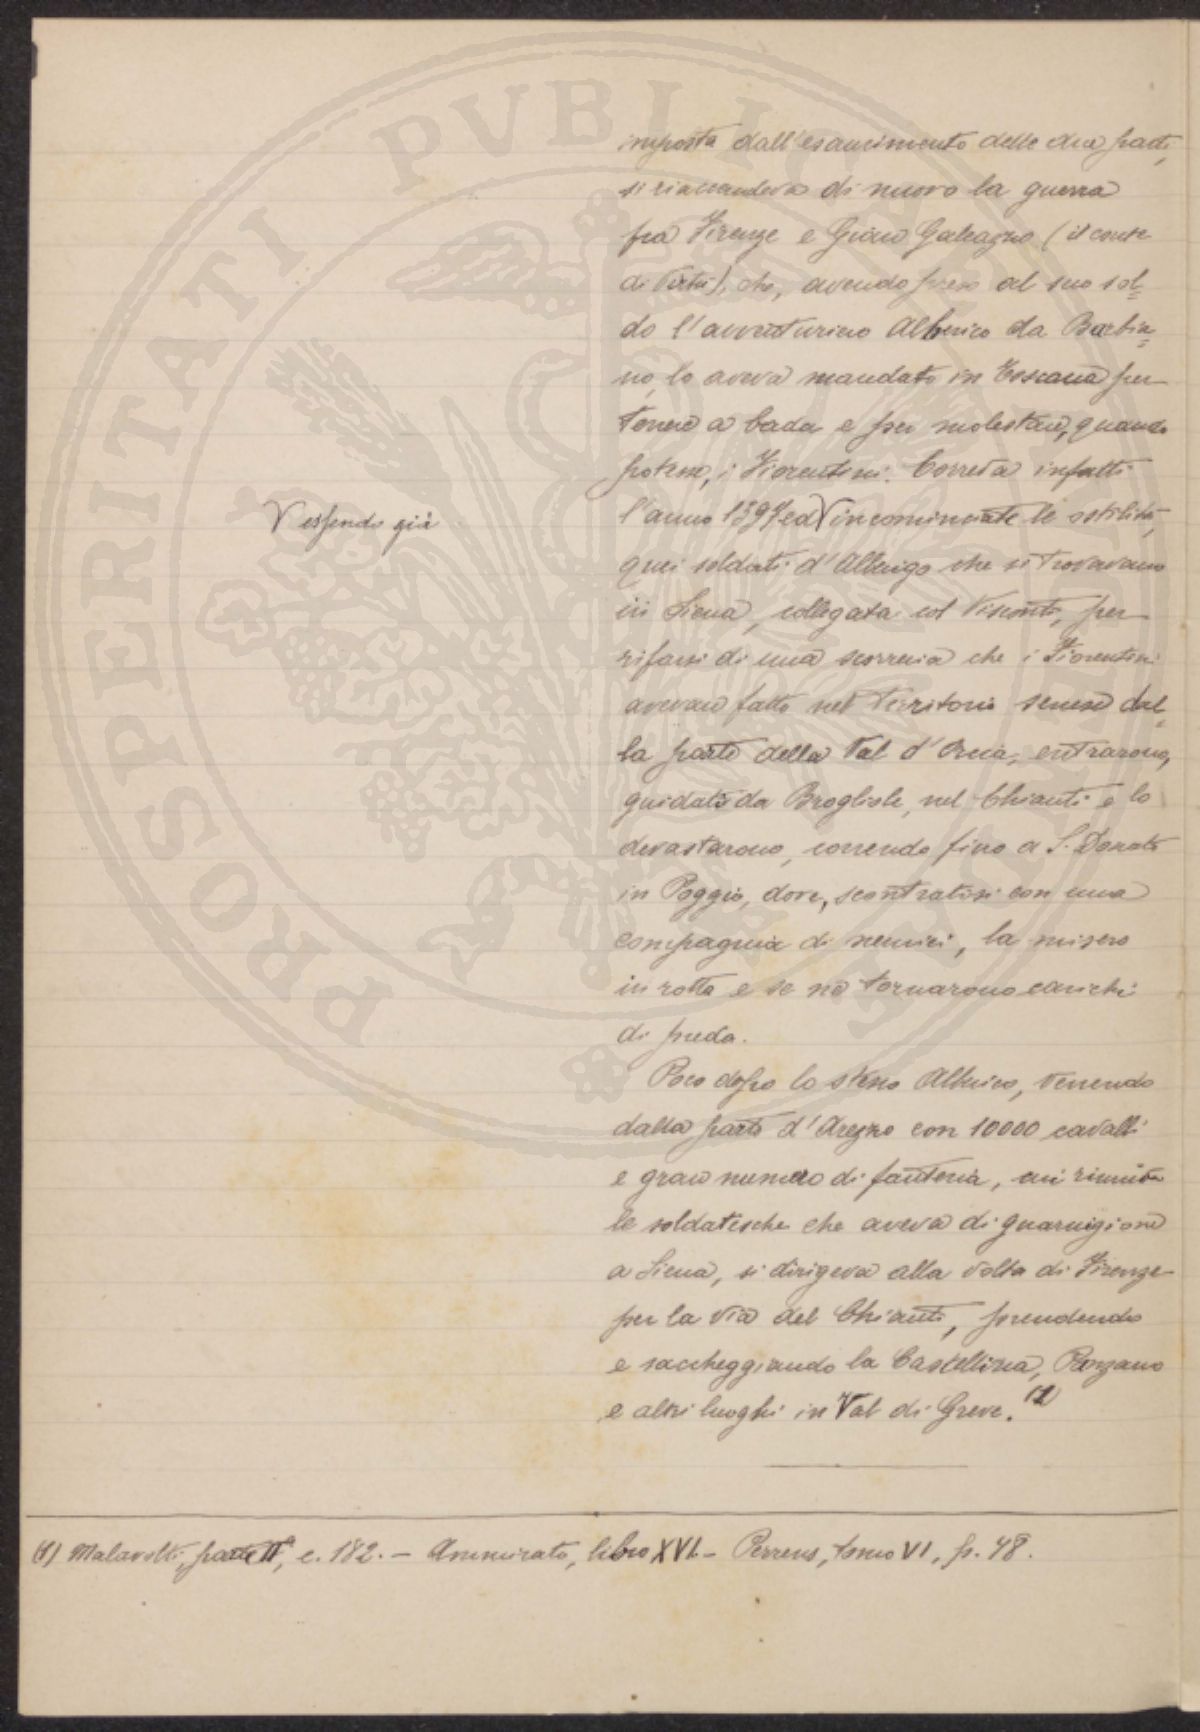 imposta dall'esaurimento delle due parti,
si riaccendeva di nuovo la guerra
fra Firenze e Gian Galeazzo (il conte
di Virtù), che, avendo preso al suo sol=
do l'avventuriero Alberico da Barbia=
no, lo aveva mandato in Toscana per
tenere a bada e per molestare, quando
potesse, i Fiorentini. Correva infatti
l'anno 1397 ed V incominciate le ostilità,
V essendo già
quei soldati d'Alberigo che si trovavano
in Siena, collegata col Visconti, per
rifarsi di una scorreria che i Fiorentini
avevano fatto nel territorio senese dal=
la parte della Val d'Orcia, entrarono,
guidati da Brogliole, nel Chianti e lo
devastarono, correndo fino a S. Donato
in Poggio, dove, scontratisi con una
compagnia di nemici, la misero
in rotta e se ne tornarono carichi
di preda.
Poco dopo lo stesso Alberico, venendo
dalla parte d'Arezzo con 10000 cavalli
e gran numero di fanteria, cui riunita
le soldatesche che aveva di guarnigione
a Siena, si dirigeva alla volta di Firenze
per la via del Chianti, prendendo
e saccheggiando la Castellina, Panzano
e altri luoghi in Val di Greve. (1)
(1) Malavolti, parte IIª, c. 182. - Ammirato, libro XVI. - Perrens, tomo VI, p. 48.
PROSPERITATI PVBLICAE